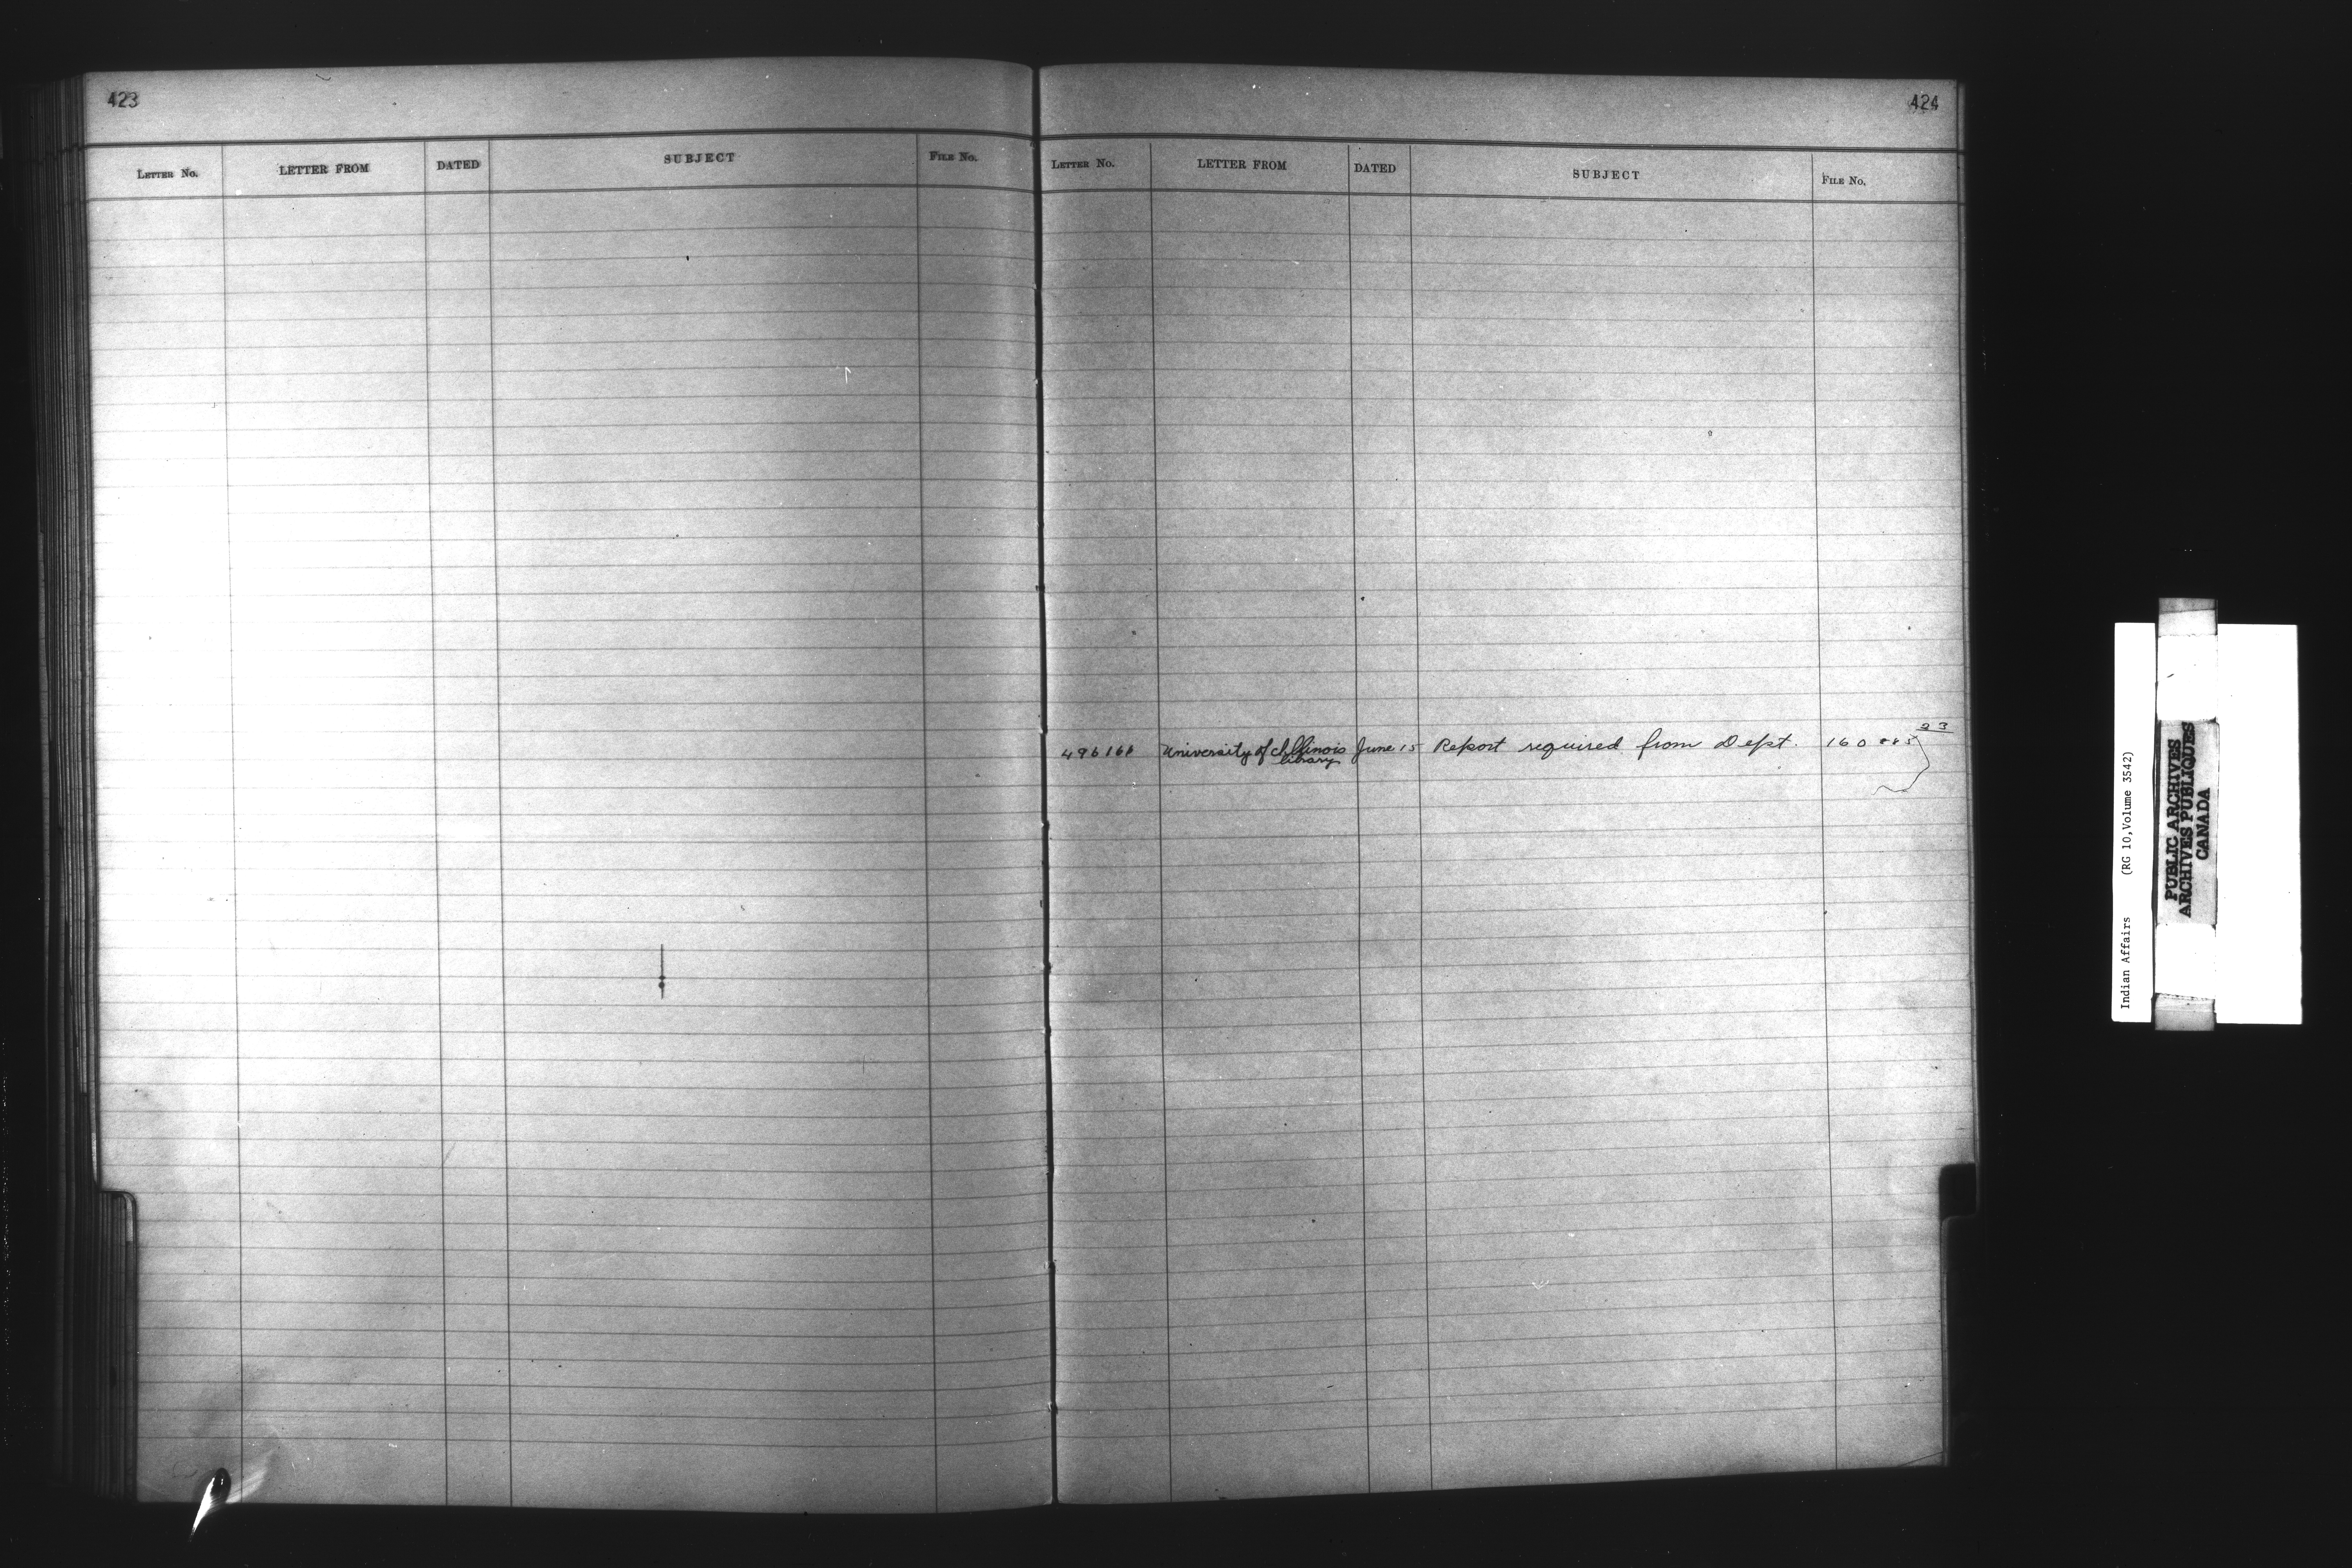 423
LETTER No. LETTER FROM DATED SUBJECT FILE No.
424
LETTER No. LETTER FROM DATED SUBJECT FILE No.
23
496166 University of Illinois June 15 Report required from Dept. 160885
library
Indian Affairs (RG 10, Volume 3542)
PUBLIC ARCHIVES
ARCHIVES PUBLIQUES
CANADA